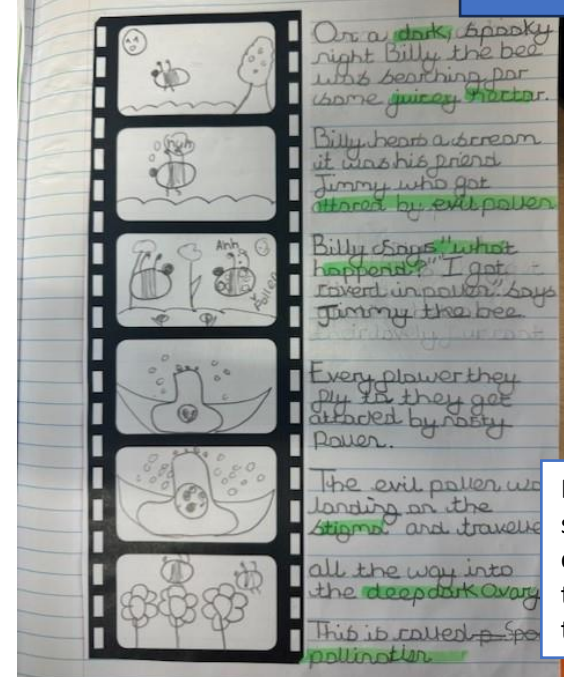 On a dark, spooky
night Billy the bee
was searching for
some juicey nectar.
Billy hears a scream
it was his friend
Jimmy who got
attaced by evil pollen
Billy says "what
happend?" "I got
coverd in pollen" says
Jimmy the bee
Every flower they
fly to they get
attacked by nasty
Pollen.
The evil pollen wa
landing on the
stigma and travelle
all the way into
the deep dark Ovary
This is called
pollination
huh
Ahh
Pollen